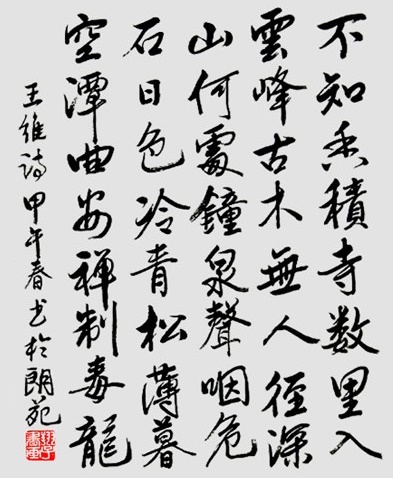 不知香積寺数里入
雲峰古木無人径深
山何處鐘泉聲咽危
石日色冷青松薄暮
空潭曲安禅制毒龍
王維诗甲午春书於朗苑